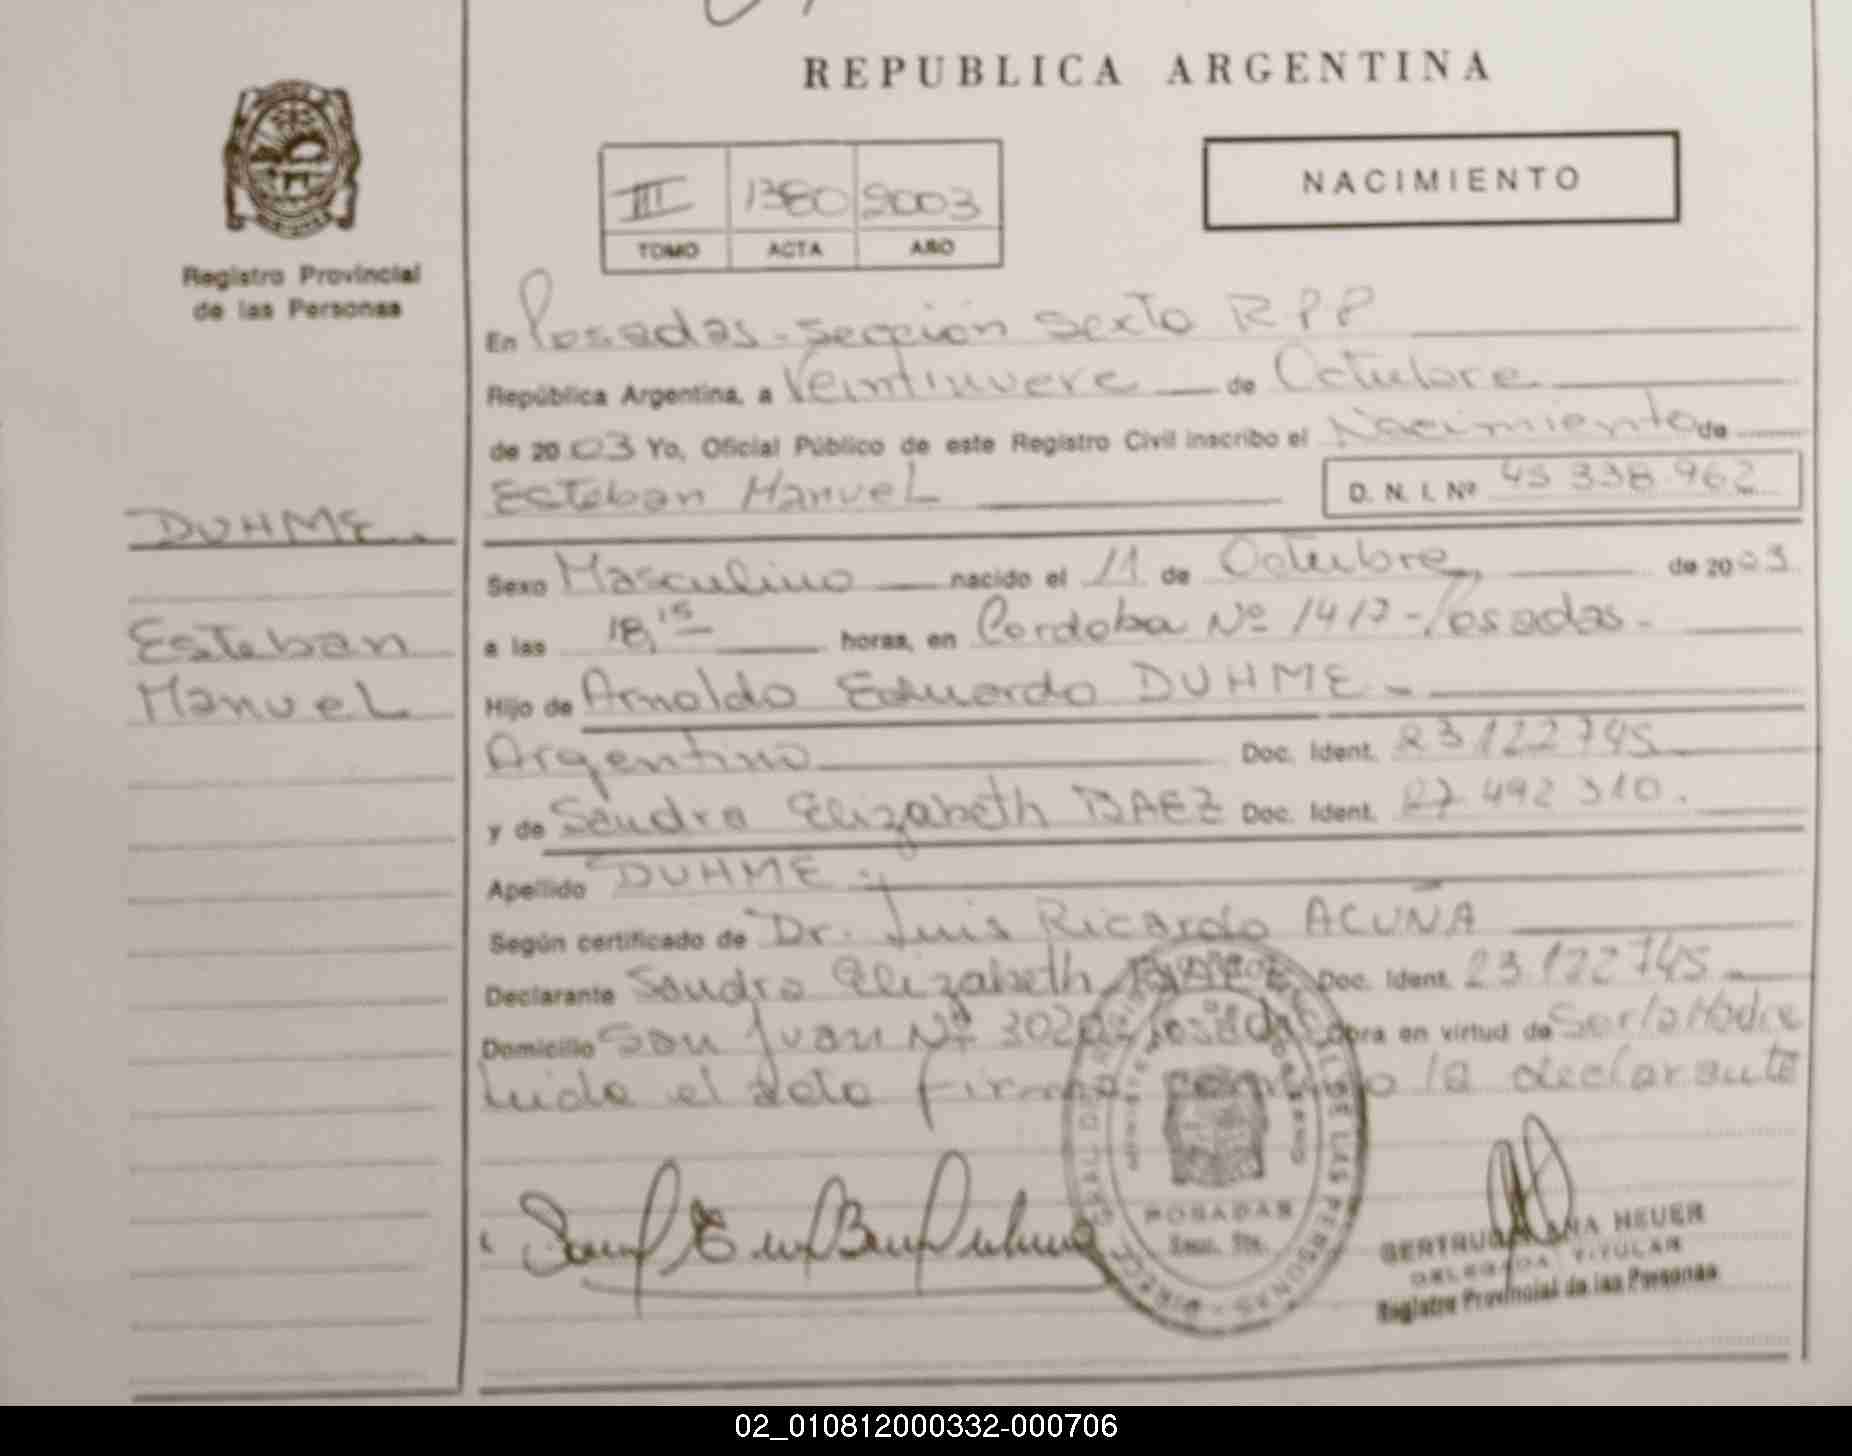 REPUBLICA ARGENTINA
NACIMIENTO
III 1380 2003
TOMO ACTA AÑO
Registro Provincial
de las Personas
En Posadas - sección sexta RPP
República Argentina, a Veintinueve de Octubre
de 2003 Yo, Oficial Público de este Registro Civil inscribo el Nacimiento de
Esteban Manuel D. N. I. Nº 45 338 962
DUHME.
Esteban
Manuel
Sexo Masculino nacido el 11 de Octubre, de 2003
a las 18,15 horas, en Cordoba Nº 1417 - Posadas -
Hijo de Arnoldo Eduardo DUHME -
Argentino Doc. Ident. 23 122 745
y de Sandra Elizabeth BAEZ Doc. Ident. 27 492 310.
Apellido DUHME
Según certificado de Dr. Luis Ricardo ACUÑA
Declarante Sandra Elizabeth BAEZ Doc. Ident. 23.122 745
Domicilio San Juan Nº Posadas Obra en virtud de Ser la Madre
Leida el acta firma conmigo la declarante
POSADAS
Secc. 6ta.
HEUER
DELEGADA TITULAR
Registro Provincial de las Personas
02_010812000332-000706